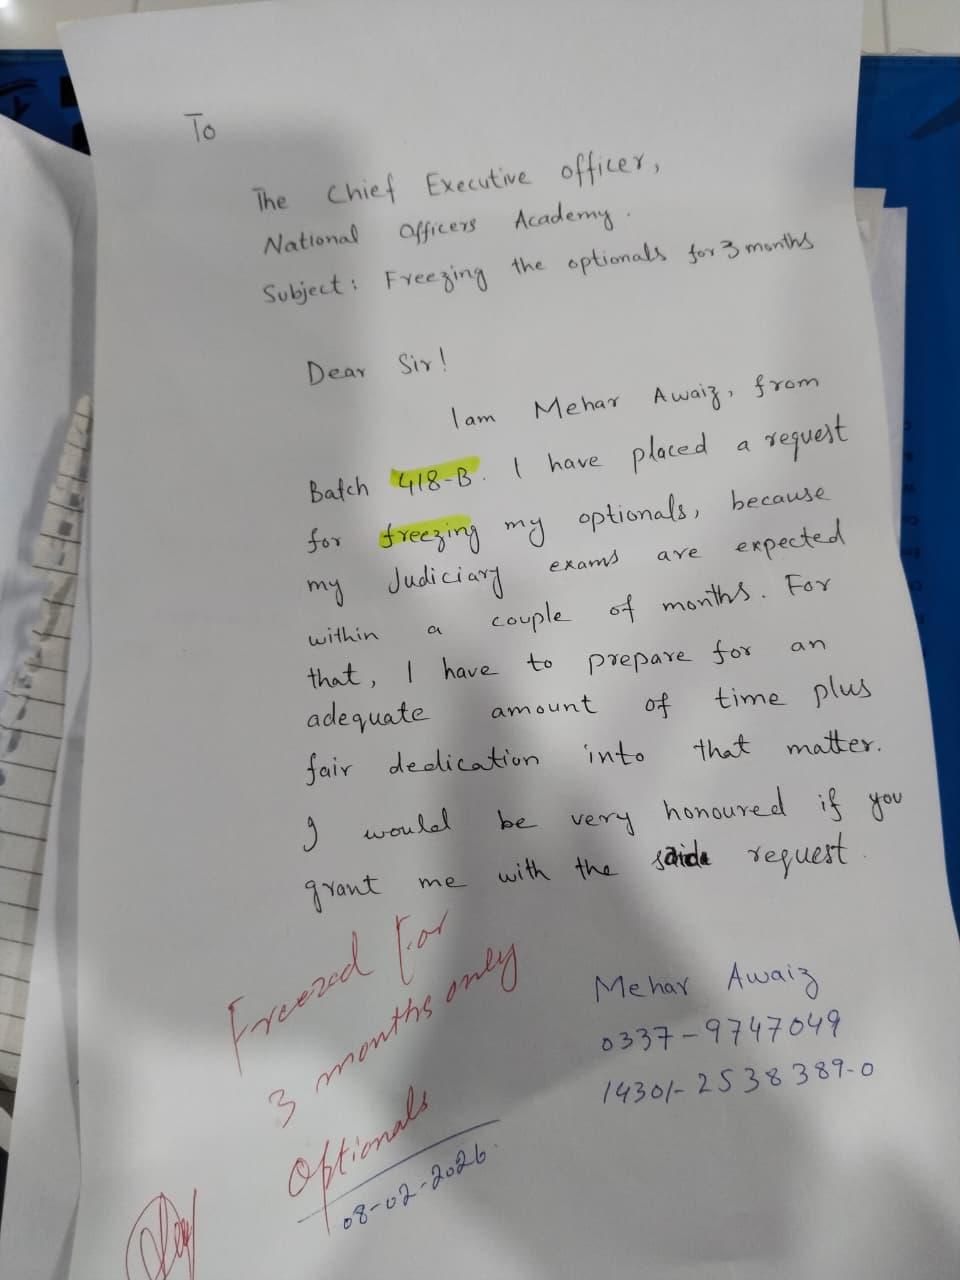 To
The Chief Executive officer,
National Officers Academy.
Subject: Freezing the optionals for 3 months
Dear Sir!
I am Mehar Awaiz, from
Batch 418-B. I have placed a request
for freezing my optionals, because
my Judiciary exams are expected
within a couple of months. For
that, I have to prepare for an
adequate amount of time plus
fair dedication into that matter.
I would be very honoured if you
grant me with the said request.
Freezed for
3 months only
Optionals
08-02-2026.
Mehar Awaiz
0337-9747049
14301-2538389-0